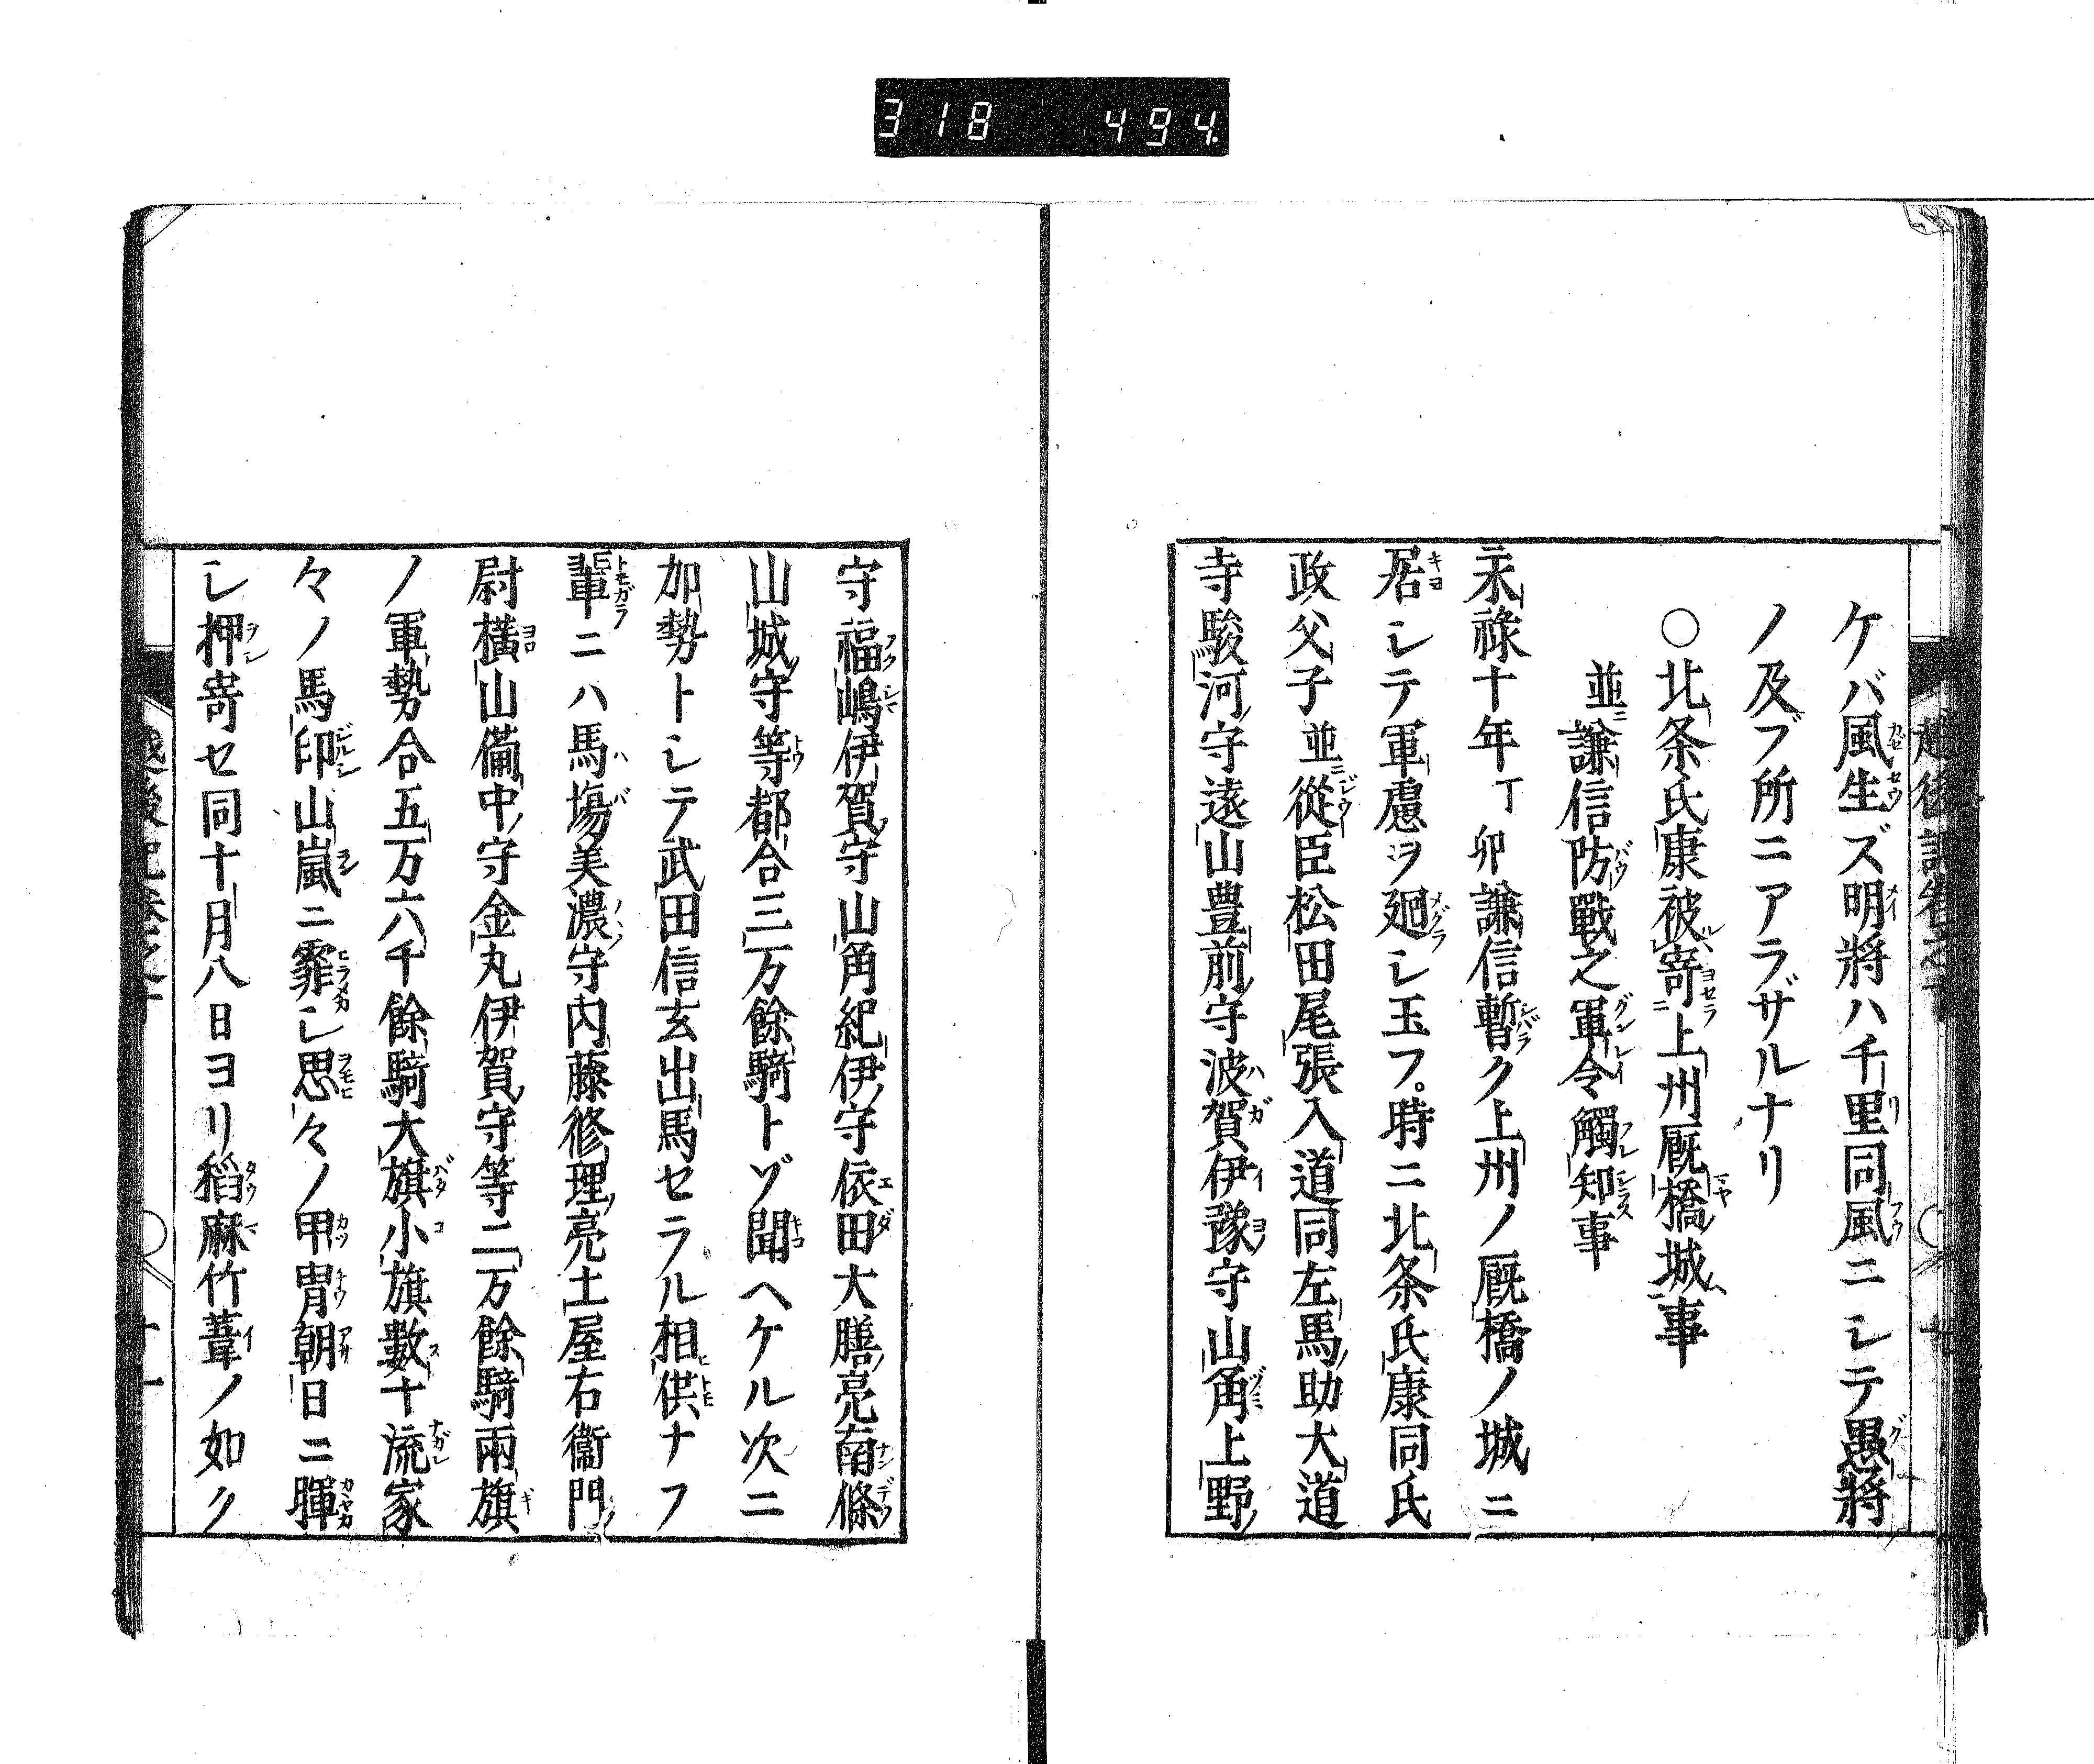 318 494
ケバ風生ズ明將ハ千里同風ニシテ愚將
ノ及ブ所ニアラザルナリ
○北条氏康被寄上州厩橋城事
並謙信防戰之軍令觸知事
永祿十年丁卯謙信暫ク上州ノ厩橋ノ城ニ
居シテ軍慮ヲ廻シ玉フ。時ニ北条氏康同氏
政父子並ニ從臣松田尾張入道同左馬助大道
寺駿河守遠山豊前守波賀伊豫守山角上野
守福嶋伊賀守山角紀伊守依田大膳亮南條
山城守等都合三万餘騎トゾ聞ヘケル次ニ
加勢トシテ武田信玄出馬セラル相供ナフ
輩ニハ馬塲美濃守内藤修理亮土屋右衞門
尉横山備中守金丸伊賀守等二万餘騎兩旗
ノ軍勢合五万六千餘騎大旗小旗數十流家
々ノ馬印山嵐ニ霏シ思々ノ甲冑朝日ニ暉
シ押寄セ同十月八日ヨリ稻麻竹葦ノ如ク